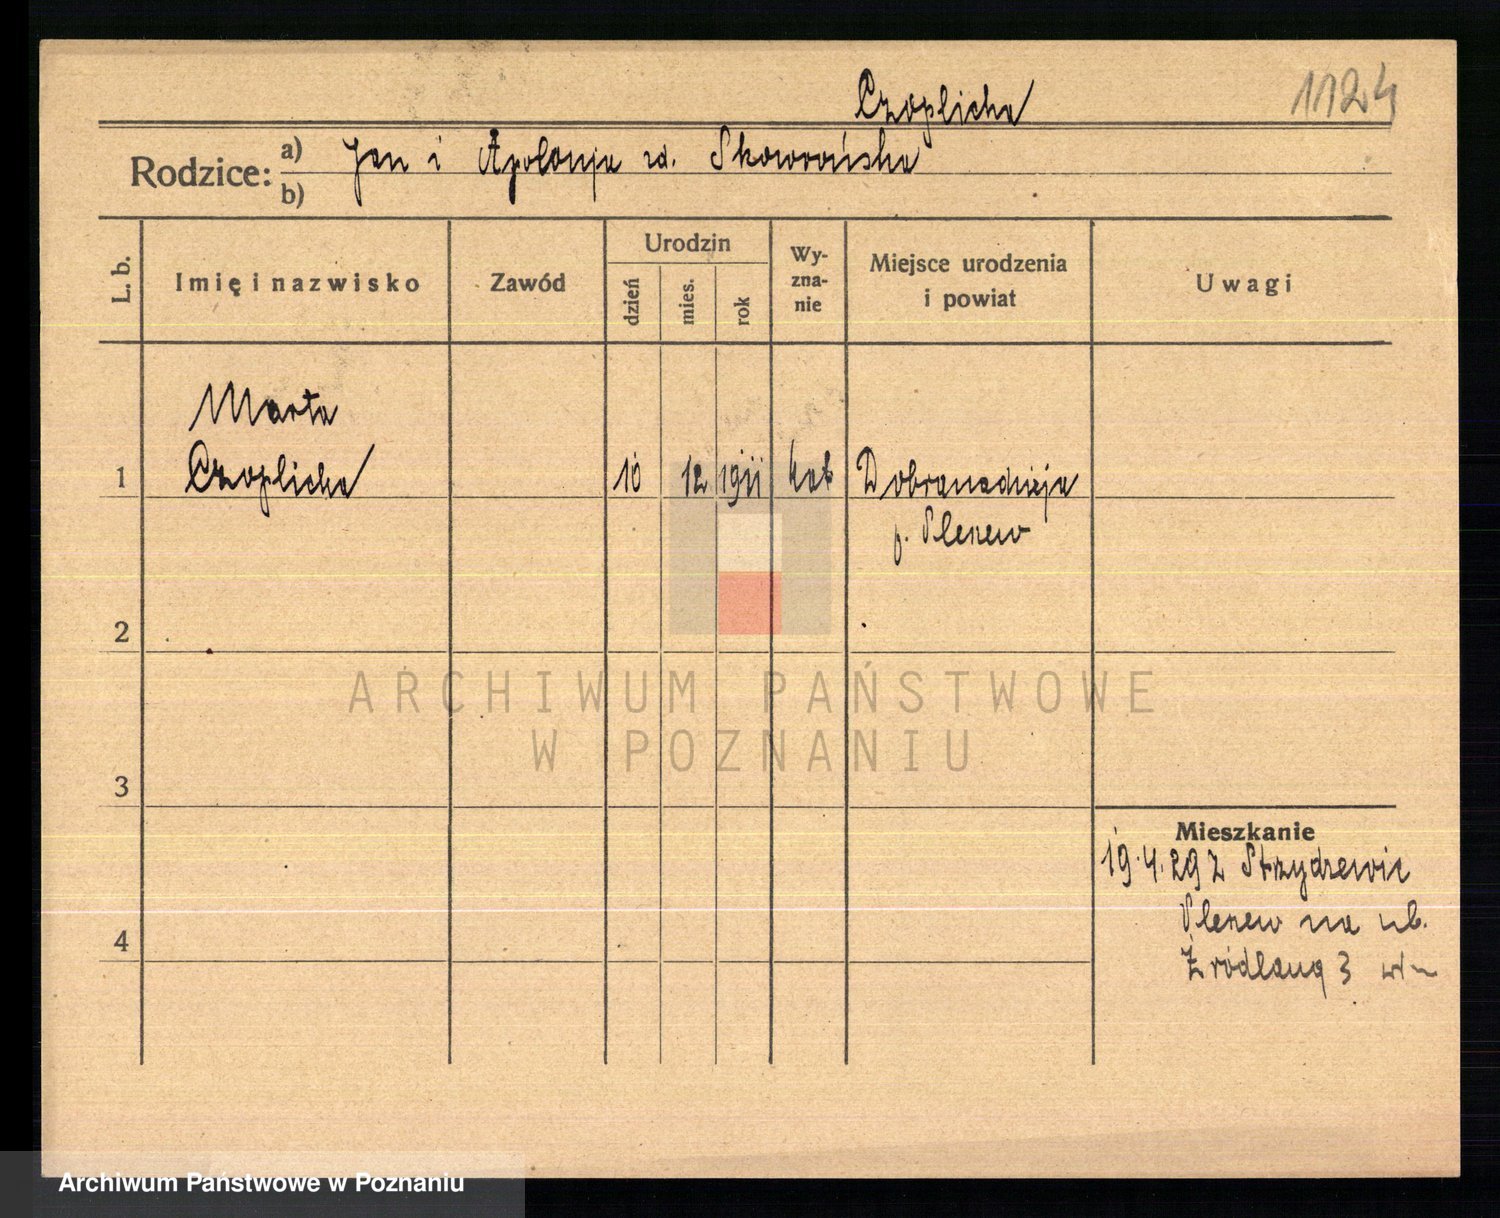 Czaplicka
1124
Rodzice: a) Jan i Apolonja zd. Skowrońska
b)
L. b.
Imię i nazwisko
Zawód
Urodzin
dzień
mies.
rok
Wy-
zna-
nie
Miejsce urodzenia
i powiat
Uwagi
Marta
1 Czaplicka 10 12 1911 kat Dobranadzieja
p. Pleszew
2
ARCHIWUM PAŃSTWOWE
W POZNANIU
3
Mieszkanie
19.4.29 z Strzydzewic
Pleszew na ul.
4
Źródlaną 3
Archiwum Państwowe w Poznaniu